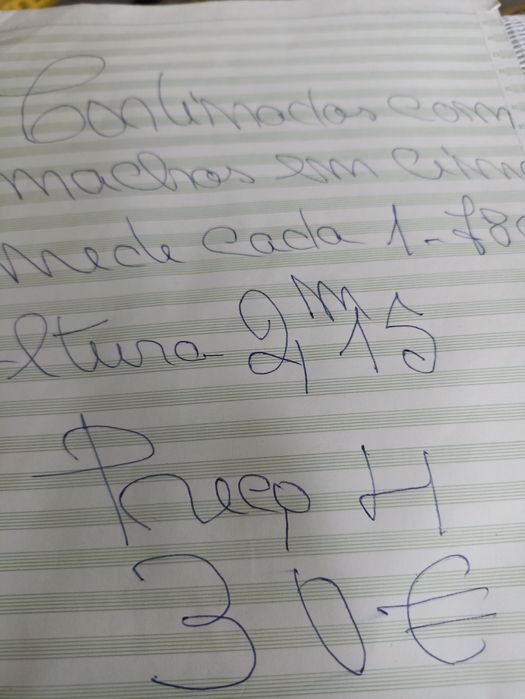 Contimados com
machos em cima
mede cada 1-78
altura 2,m15
30€